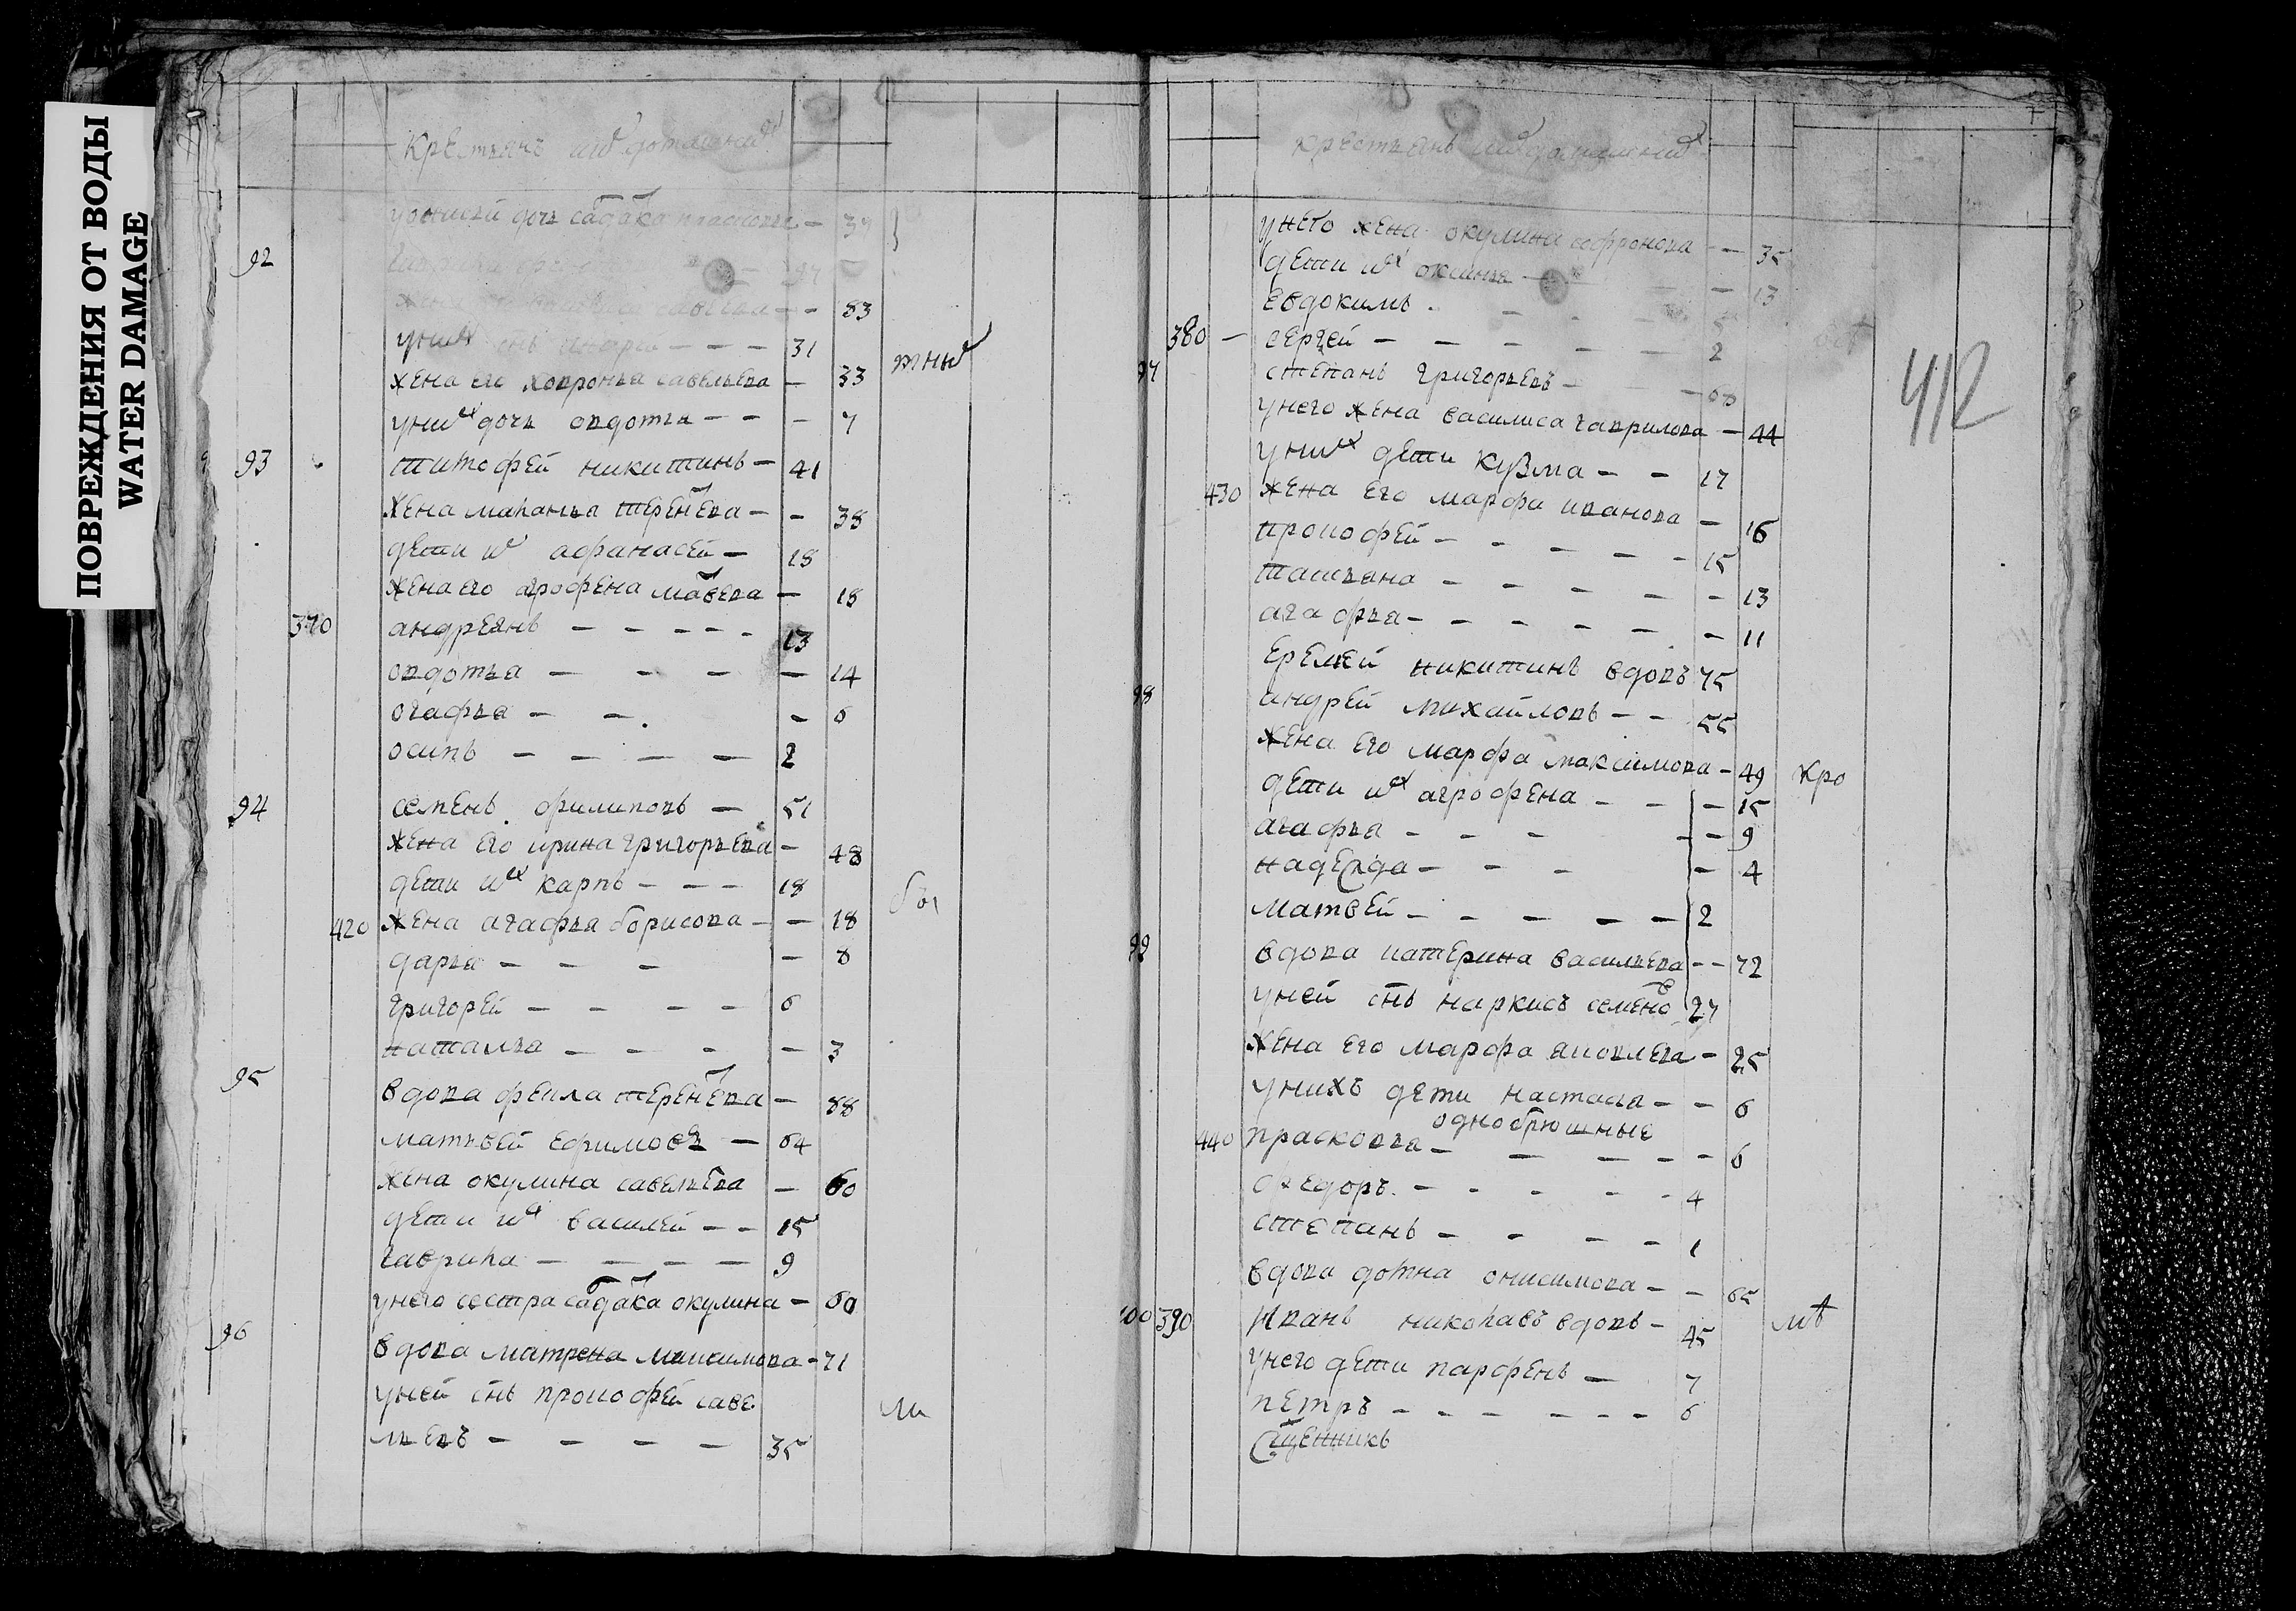 ПОВРЕЖДЕНИЯ ОТ ВОДЫ
WATER DAMAGE
крестьянъ их домашних
дочь салдатка 39
92
83
у них снъ андрей 31
жена его ховронья савельева 33 тных
у них дочь овдотья 7
93 тимофей никитинъ 41
жена маланья терентева 38
дети их афанасей 18
жена его агрофена мавеева 18
370 андреянъ 13
овдотья 14
огафья 6
осипъ 2
94 семенъ филиповъ 51
жена его ирина григорьева 48
дети их карпъ 18 бы
420 жена агафья борисова 18
дарья 8
григорей 6
наталья 3
95 вдова фекла терентева 88
матвей ефимовъ 64
жена окулина савельева 60
дети их василей 15
гаврила 9
у него сестра салдатка окулина 60
96 вдова матрена максимова 71
у ней снъ прокофей саве ли
льевъ 35
крестьянъ их домашних
у него жена окулина софронова 35
дети их оксинья 13
евдокимъ
380 сергей 2
97 степанъ григорьевъ 60
412
у него жена василиса гаврилова 44
у них дети кузма 17
430 жена его марфа иванова 16
прокофей 15
татьяна 13
агафья 11
еремей никитинъ вдовъ 75
98 андрей михайловъ 55
жена его марфа максимова 49 кро
дети их агрофена 15
агафья 9
надежда 4
матвей 2
99 вдова катерина васильева 72
у ней снъ наркисъ семено 27
жена его марфа яковлева 25
у нихъ дети настасья 6
однобрюшные
440 прасковья 6
федоръ 4
степанъ 1
вдова онисимова 65
100 390 иванъ николаевъ вдовъ 45 мѣ
у него дети парфенъ 7
петръ 6
Сщенникъ